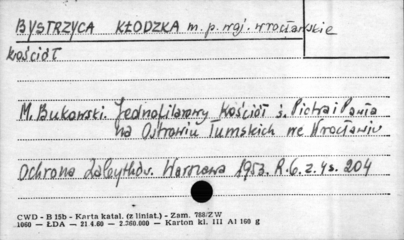 BYSTRZYCA KŁODZKA m. p. woj. wrocławskie
kościół
M. Bukowski. Jednofilarowy kościół ś. Piotra i Pawła
na Ostrowiu Tumskich we Wrocławiu
Ochrona Zabytków. Warszawa 1953. R. 6. z. 4 s. 204
CWD - B 15b - Karta katal. (z liniat.) - Zam. 788/ZW
1060 — ŁDA — 21 4.60 — 2.360.000 — Karton kl. III A1 160 g